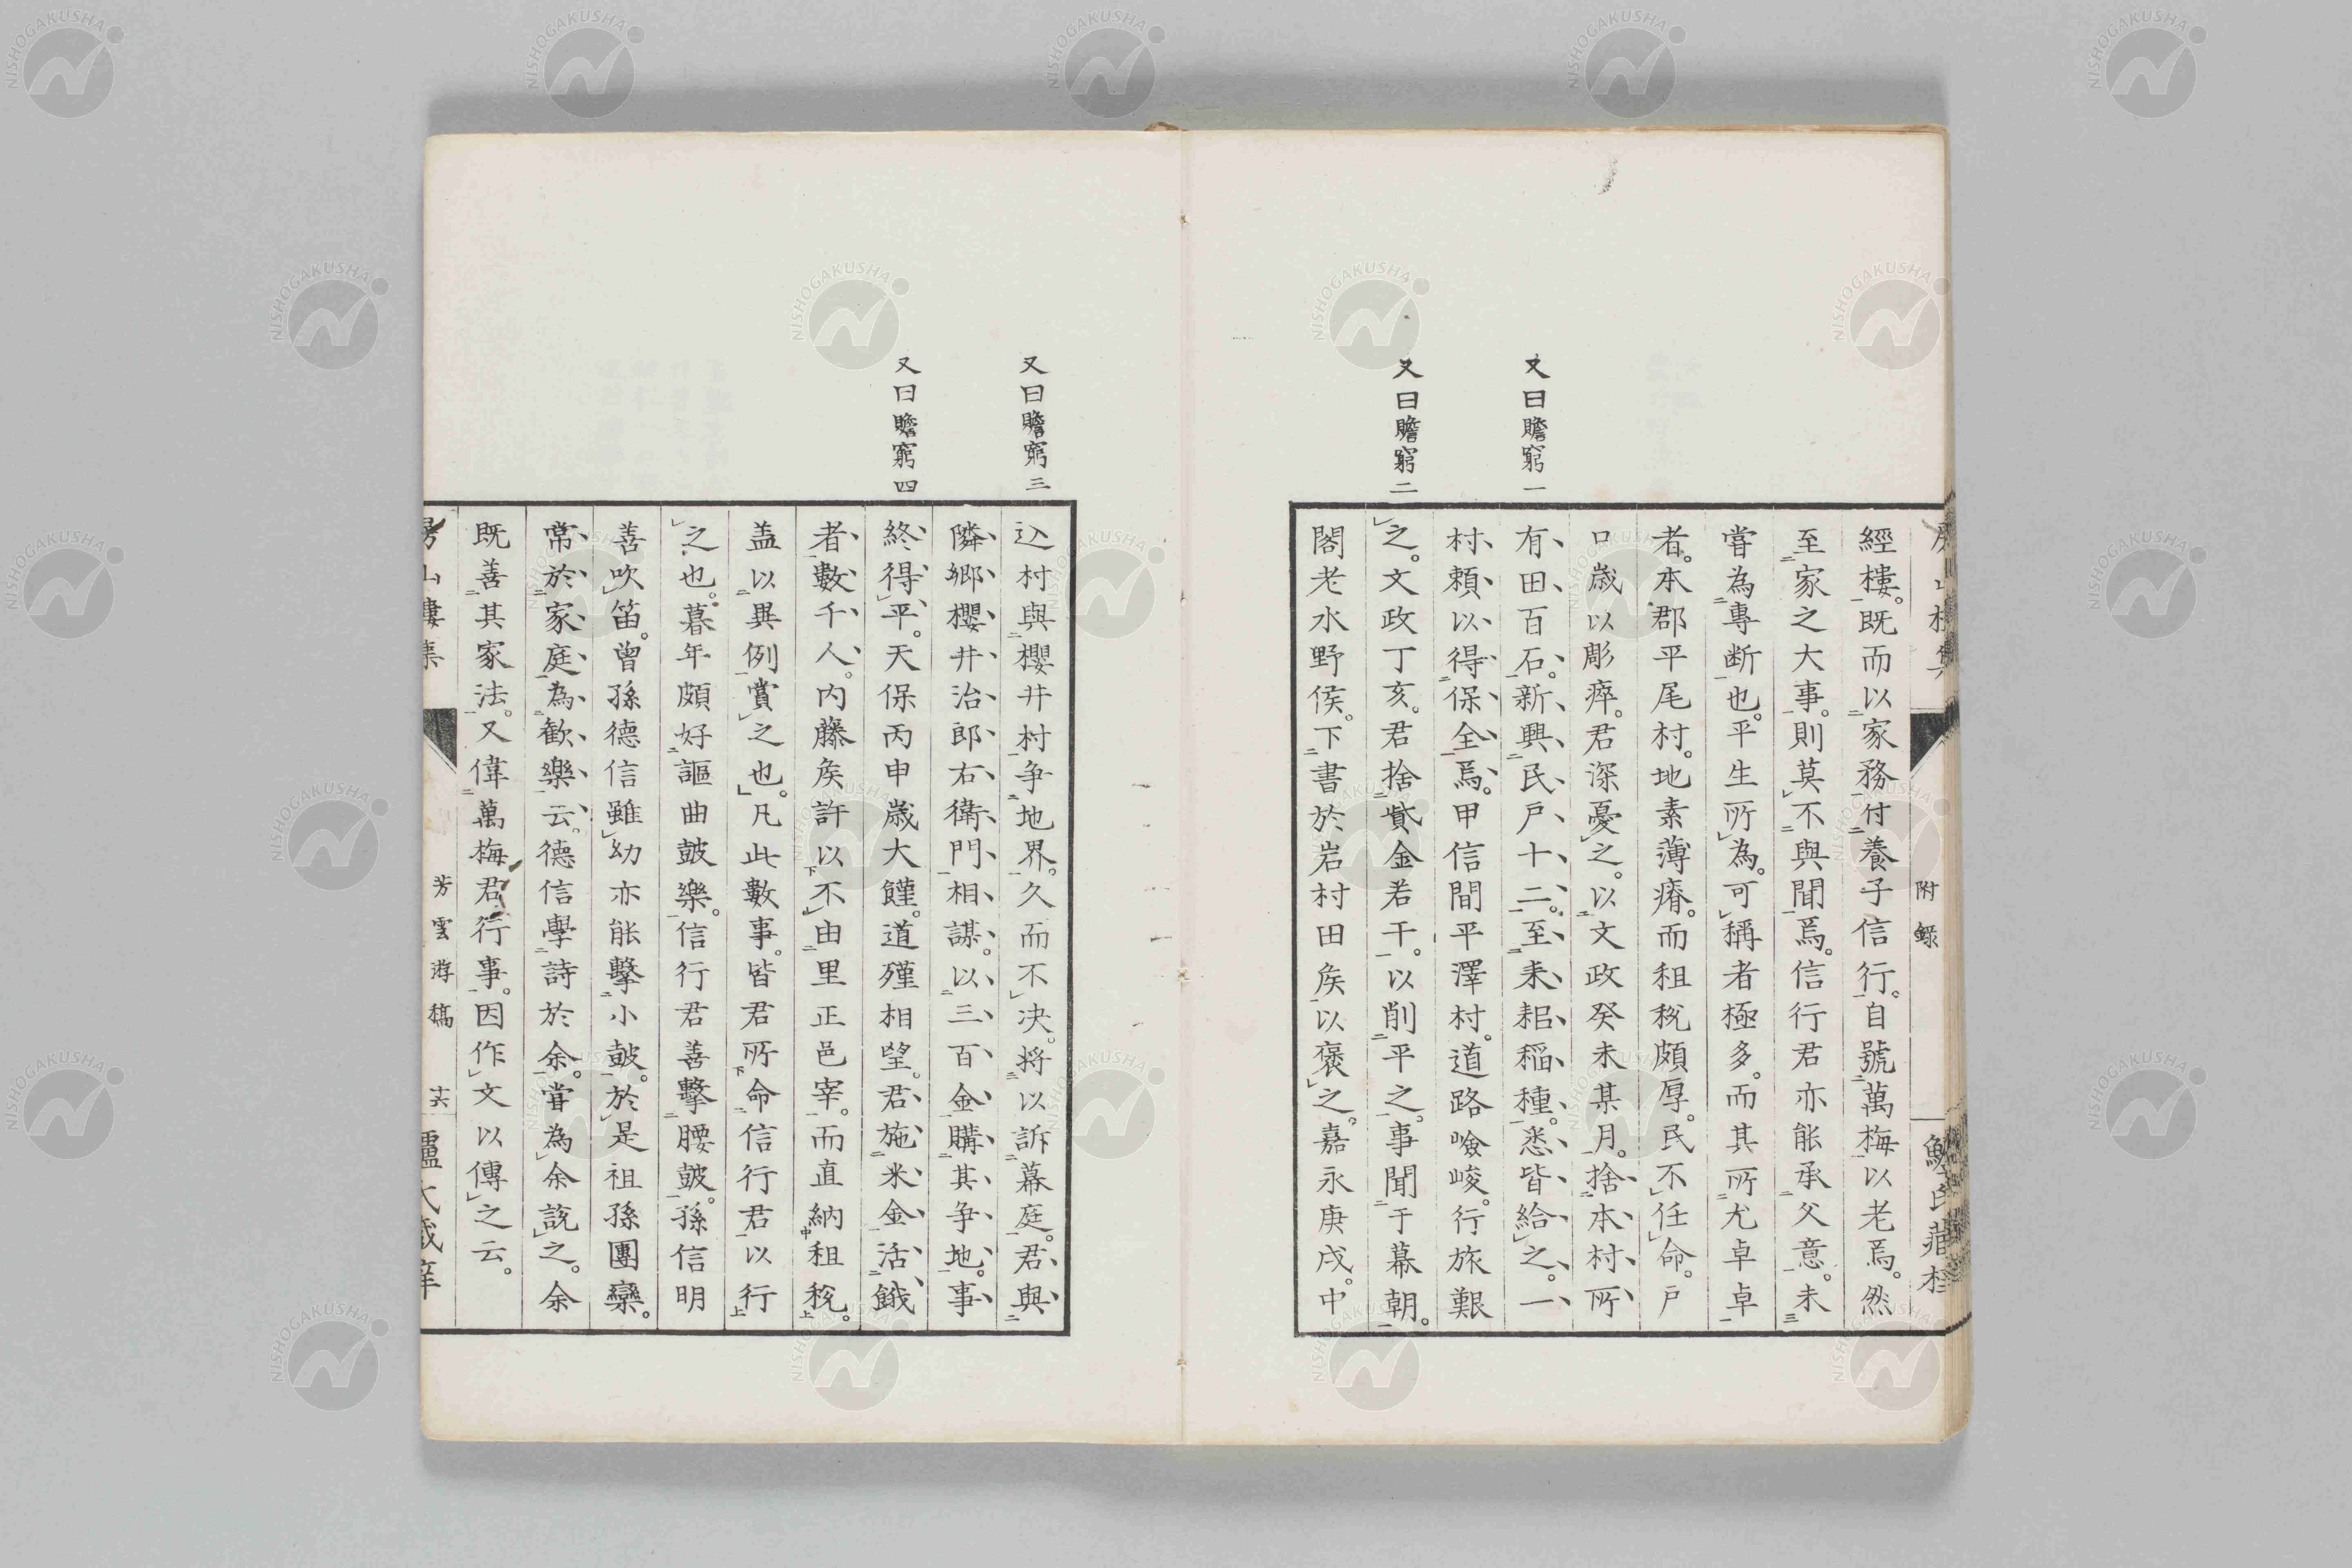 又曰贍窮一
又曰贍窮二
附錄
經樓。既而以家務付養子信行。自號萬梅以老焉。然
至家之大事。則莫不與聞焉。信行君亦能承父意。未
嘗為專断也。平生所為。可稱者極多。而其所尤卓卓
者。本郡平尾村。地素薄瘠。而租稅頗厚。民不任命。戶
口歲以彫瘁。君深憂之。以文政癸未某月。捨本村所
有田百石。新興民戶十二。至耒耜稲種。悉皆給之。一
村賴以得保全焉。甲信間平澤村。道路嶮峻。行旅艱
之。文政丁亥。君捨貲金若干。以削平之。事聞于幕朝。
閣老水野侯。下書於岩村田矦以褒之。嘉永庚戌。中
又曰贍窮三
又曰贍窮四
込村與櫻井村争地界。久而不决。将以訴幕庭。君與
隣鄉櫻井治郎右衛門相謀。以三百金購其争地。事
終得平。天保丙申歲大饉。道殣相望。君施米金活餓
者數千人。内藤矦許以不由里正邑宰。而直納租稅。
盖以異例賞之也。凡此數事。皆君所命信行君以行
之也。暮年頗好謳曲鼓樂。信行君善擊腰鼓。孫信明
善吹笛。曾孫德信雖幼亦能擊小鼓。於是祖孫團欒。
常於家庭為歡樂云。德信學詩於余。嘗為余説之。余
既善其家法。又偉萬梅君行事。因作文以傳之云。
芳雲游稿